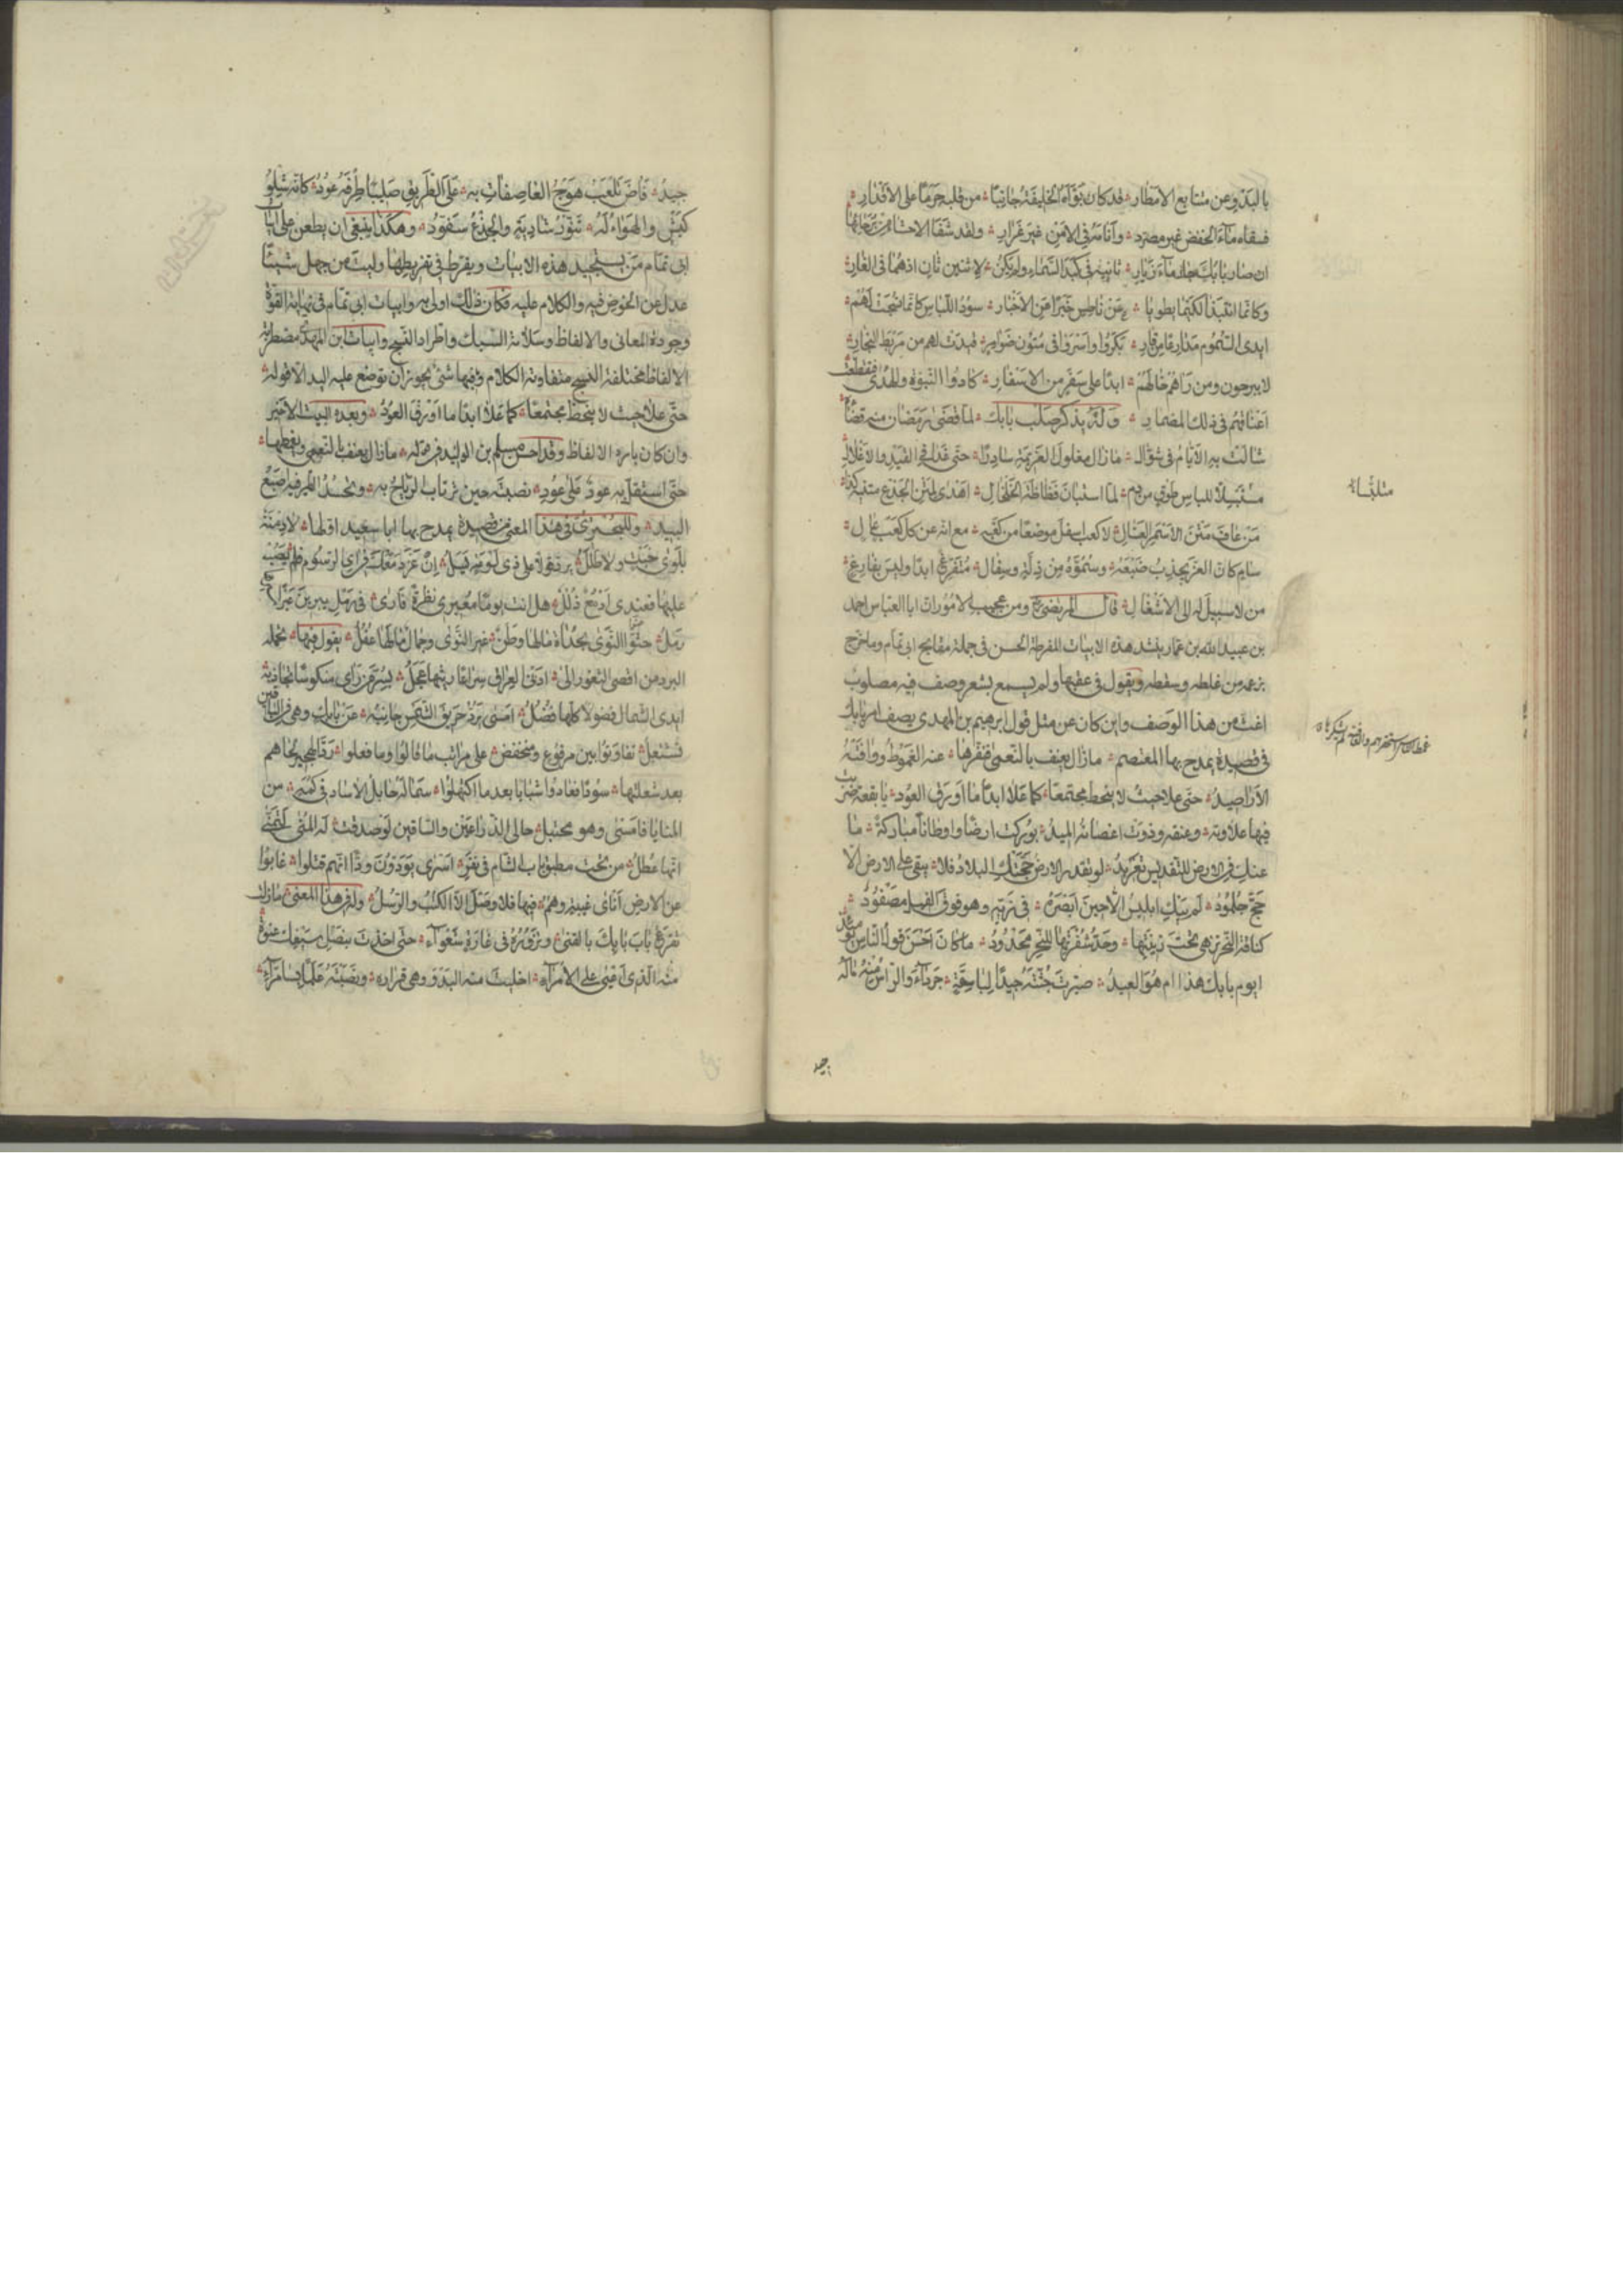 بالبذ وعن متتابع الامطار قد كان بوّأه الخليفة جانبًا من قلبه حرمًا على الاقدار
فسقاه ماء الخفض غير مصرّد وأنامه في الامن غير غرار ولقد شفا الاحشاء من برحائها
ان صار بابك جار مازيار ثانيه في كبد السماء ولم يكن لاثنين ثان اذهما فى الغار
وكانّما انتبذا لكيما يطويا عن ناطس خبرًا من الاخبار سود اللباس كانما نسجت لهم
ايدى السموم مدارعًا من قار بكروا واسروا فى متون ضوامر قيدت لهم من مربط النجّار
لا يبرحون ومن راهم خالهم ابدًا على سفر من الاسفار كادوا النبوة والهدى فتقطعت
اعناقهم فى ذلك المضمار وله يذكر صلب بابك لما قضى رمضان منه قضاءه
شالت به الايام فى شوّال ما زال مغلول العزيمة سادرًا حتى غدا فى القيد والاغلال
مستبسلًا للباس طوق من دم لما استبان فظاظة الخلخال اهدى لمتن الجذع متنيه كذا
من عاف متن الاسمر العسّال لا كعب اسفل موضعًا من كعبه مع انه عن كل كعب عال
سام كان العز يجذب ضبعه وسموّه من ذلة وسفال متفرغ ابدًا وليس بفارغ
من لا سبيل له الى الاشغال قال المرتضى ومن عجيب الامور ان ابا العباس احمد
بن عبيد الله بن عمار ينشد هذه الابيات المفرطة الحسن فى جملة مقابح ابى تمام وما خرج
بزعمه من غلطه وسقطه ويقول فى عقبها ولم يسمع بشعر وصف فيه مصلوب
اغث من هذا الوصف واين كان عن مثل قول ابرهيم بن المهدى يصف امر بابك
فى قصيدة يمدح بها المعتصم ما زال يعنف بالنعمى فنفرها عنه الغموط ووافته
الاراصيد حتى علا حيث لا ينحط مجتمعًا كما علا ابدًا ما اورق العود يا بقعة ضربت
فيها علاوته وعنقه وذوت اغصانه الميد بوركت ارضًا واوطانًا مباركة ما
عنك فى الارض للتقديس تعريد لو تقدر الارض حجّتك البلاد فلا يبقى على الارض الا
حج جلمود لم يبك ابليس الا حين ابصره فى زيّه وهو فوق الفيل مصفود
كناقة النحر تزهى تحت زينتها وحد شفرتها للنحر محدود ما كان احسن قول الناس يومئذ
ايوم بابك هذا ام هو العيد صيرت جثته جيدًا لباسقة جرداء والراس منه ما له
متلبسا
جيد
جيد فاض تلعب هوج العاصفات به على الطريق صليبًا طرفه عود كانه شلو
كبش والهواء له تنور شاوية والجذع سفود وهكذا ينبغى ان يطعن على ابيات
ابى تمام من يستجيد هذه الابيات ويفرط فى تقريظها وليت من جهل شيئًا
عدل عن الخوض فيه والكلام عليه فكان ذلك اولى به وابيات ابى تمام فى نهاية القوة
وجودة المعانى والالفاظ وسلاسة السبك واطراد النسج وابيات ابن المهدى مضطربة
الالفاظ مختلفة النسج متفاوتة الكلام وفيها شئ يجوز ان توضع عليه اليد الا قوله
حتى علا حيث لا ينحط مجتمعًا كما علا ابدًا ما اورق العود وبعده البيت الاخير
وان كان بارد الالفاظ وقد احسن مسلم بن الوليد فى قوله ما زال يعنف بالنعمى ويغمطها
حتى استقل به عود على عود نصبته حين ترتاب الرياح به وتحسد الطير فيه اضبع
البيد وللبحترى فى هذا المعنى من قصيدة يمدح بها ابا سعيد اولها لا دمنة
بلوى خبت ولا طلل يرد قولًا على ذى لوعة يسل ان عز دمعك فى اى الرسوم فلم يصب
عليها فعندى ادمع ذلل هل انت يومًا معيرى نظرة فترى فى رمل يبرين عيرًا
رمل حثوا النوى بحداة ما لها وطن غير النوى وجمال ما لها عقل يقول فيها تحمله
البرد من اقصى الثغور الى ادنى العراق سراعًا ريثها عجل بسر من راى منكوسًا تجاذبه
ايدى الشمال فضولًا كلها فضل امسى يرد حريق الشمس جانبه عن بابك وهى فى الباقين
تشتعل تفاوتوا بين مرفوع ومنخفض على مراتب ما قالوا وما فعلوا رد الهجير لحاهم
بعد شعلتها سودًا فعادوا شبابًا بعد ما اكتهلوا سما له حابل الاساد فى لمة من
المنايا فامسى وهو محتبل حالى الذراعين والساقين لو صدقت له المنى لتمنى
انها عطل من تحت مطبق باب الشام فى نفر اسرى يودون ودا انهم قتلوا غابوا
عن الارض انأى غيبة وهم فيها فلا وصل الا الكتب والرسل وله فى هذا المعنى ما زلت
تقرع باب بابك بالقنى وتزوره فى غارة شعواء حتى اخذت بنصل سيفك عنوة
منه الذى اعيى على الامراء اخليت منه البذ وهى قراره ونصبته علمًا بسامراء